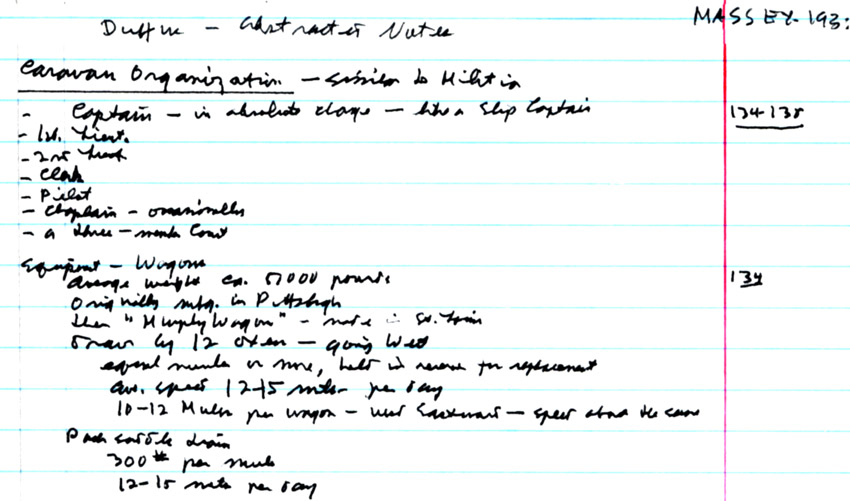 Duffus — Abstracter Notes
MASSEY-193:
Caravan Organization — similar to Militia
- Captain — in absolute charge — like a Ship Captain 134-135
- 1st. Lieut.
- 2nd Lieut
- Clerk
- Pilot
- Chaplain - occasionally
- a three-member Court
Equipment - Wagons
average weight ca. 5000 pounds 134
Originally mfg. in Pittsburgh
then "Murphy Wagon" - made in St. Louis
Drawn by 12 oxen — going West
equal number or more, held in reserve for replacement
av. speed 12-15 miles per day
10-12 Mules per wagon - used Eastward — speed about the same
Pack saddle train
300# per mule
12-15 miles per day